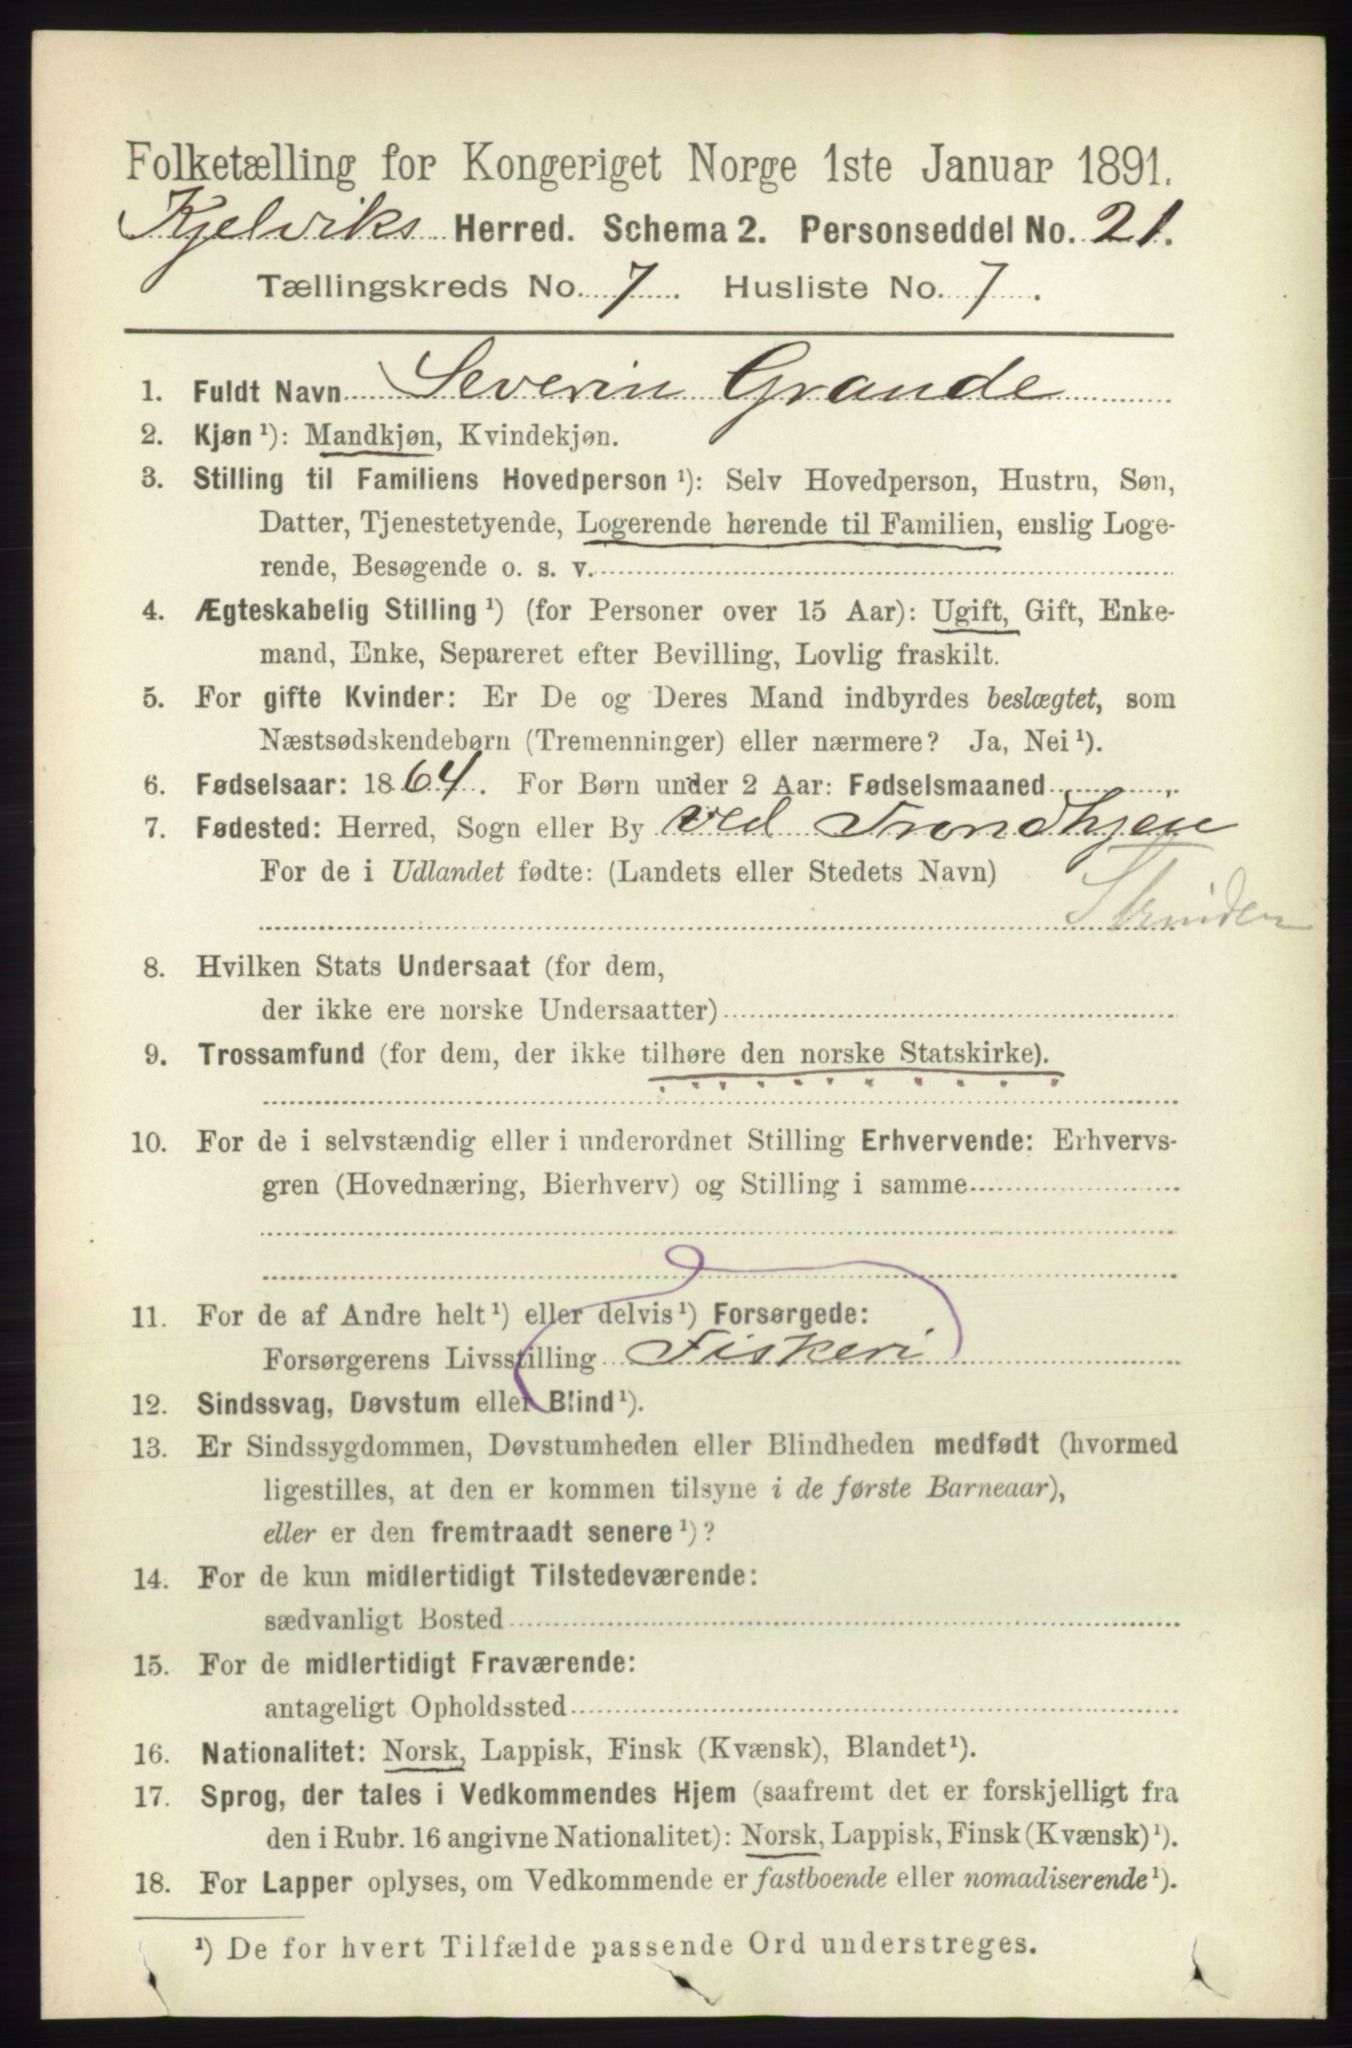 Folketælling for Kongeriget Norge 1ste Januar 1891.
Kjelviks Herred. Schema 2. Personseddel No. 21.
Tællingskreds No. 7. Husliste No. 7.
1. Fuldt Navn Severin Grande
2. Kjøn ¹): Mandkjøn, Kvindekjøn.
3. Stilling til Familiens Hovedperson ¹): Selv Hovedperson, Hustru, Søn,
Datter, Tjenestetyende, Logerende hørende til Familien, enslig Loge-
rende, Besøgende o. s. v.
4. Ægteskabelig Stilling ¹) (for Personer over 15 Aar): Ugift, Gift, Enke-
mand, Enke, Separeret efter Bevilling, Lovlig fraskilt.
5. For gifte Kvinder: Er De og Deres Mand indbyrdes beslægtet, som
Næstsødskendebørn (Tremenninger) eller nærmere? Ja, Nei ¹).
6. Fødselsaar: 1864. For Børn under 2 Aar: Fødselsmaaned
7. Fødested: Herred, Sogn eller By ved Trondhjem
For de i Udlandet fødte: (Landets eller Stedets Navn)
Strinden
8. Hvilken Stats Undersaat (for dem,
der ikke ere norske Undersaatter)
9. Trossamfund (for dem, der ikke tilhøre den norske Statskirke).
10. For de i selvstændig eller i underordnet Stilling Erhvervende: Erhvervs-
gren (Hovednæring, Bierhverv) og Stilling i samme
11. For de af Andre helt ¹) eller delvis ¹) Forsørgede:
Forsørgerens Livsstilling Fiskeri
12. Sindssvag, Døvstum eller Blind ¹).
13. Er Sindssygdommen, Døvstumheden eller Blindheden medfødt (hvormed
ligestilles, at den er kommen tilsyne i de første Barneaar),
eller er den fremtraadt senere ¹)?
14. For de kun midlertidigt Tilstedeværende:
sædvanligt Bosted
15. For de midlertidigt Fraværende:
antageligt Opholdssted
16. Nationalitet: Norsk, Lappisk, Finsk (Kvænsk), Blandet ¹).
17. Sprog, der tales i Vedkommendes Hjem (saafremt det er forskjelligt fra
den i Rubr. 16 angivne Nationalitet): Norsk, Lappisk, Finsk (Kvænsk) ¹).
18. For Lapper oplyses, om Vedkommende er fastboende eller nomadiserende ¹).
¹) De for hvert Tilfælde passende Ord understreges.